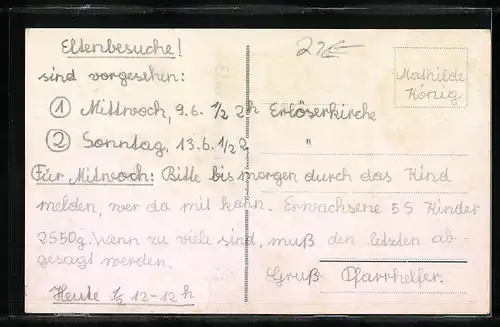 Eltenbesuche!
sind vorgesehen:
① Mittwoch, 9.6. 1/2 2h Erlöserkirche
② Sonntag, 13.6. 1/2 2 "
Für Mitwoch: Bitte bis morgen durch das Kind
melden, wer da mit kann. Erwachsene 5S Kinder
2S50g. Wenn zu viele sind, muß den letzten ab-
gesagt werden.
Gruß Pfarrhelfer.
Heute 1/2 12-12h
Mathilde
König